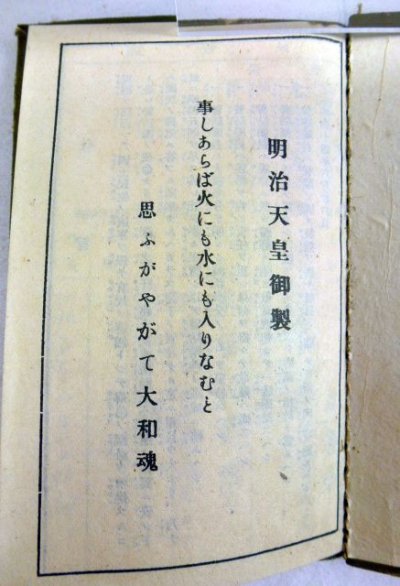 明治天皇御製
事しあらば火にも水にも入りなむと
思ふがやがて大和魂